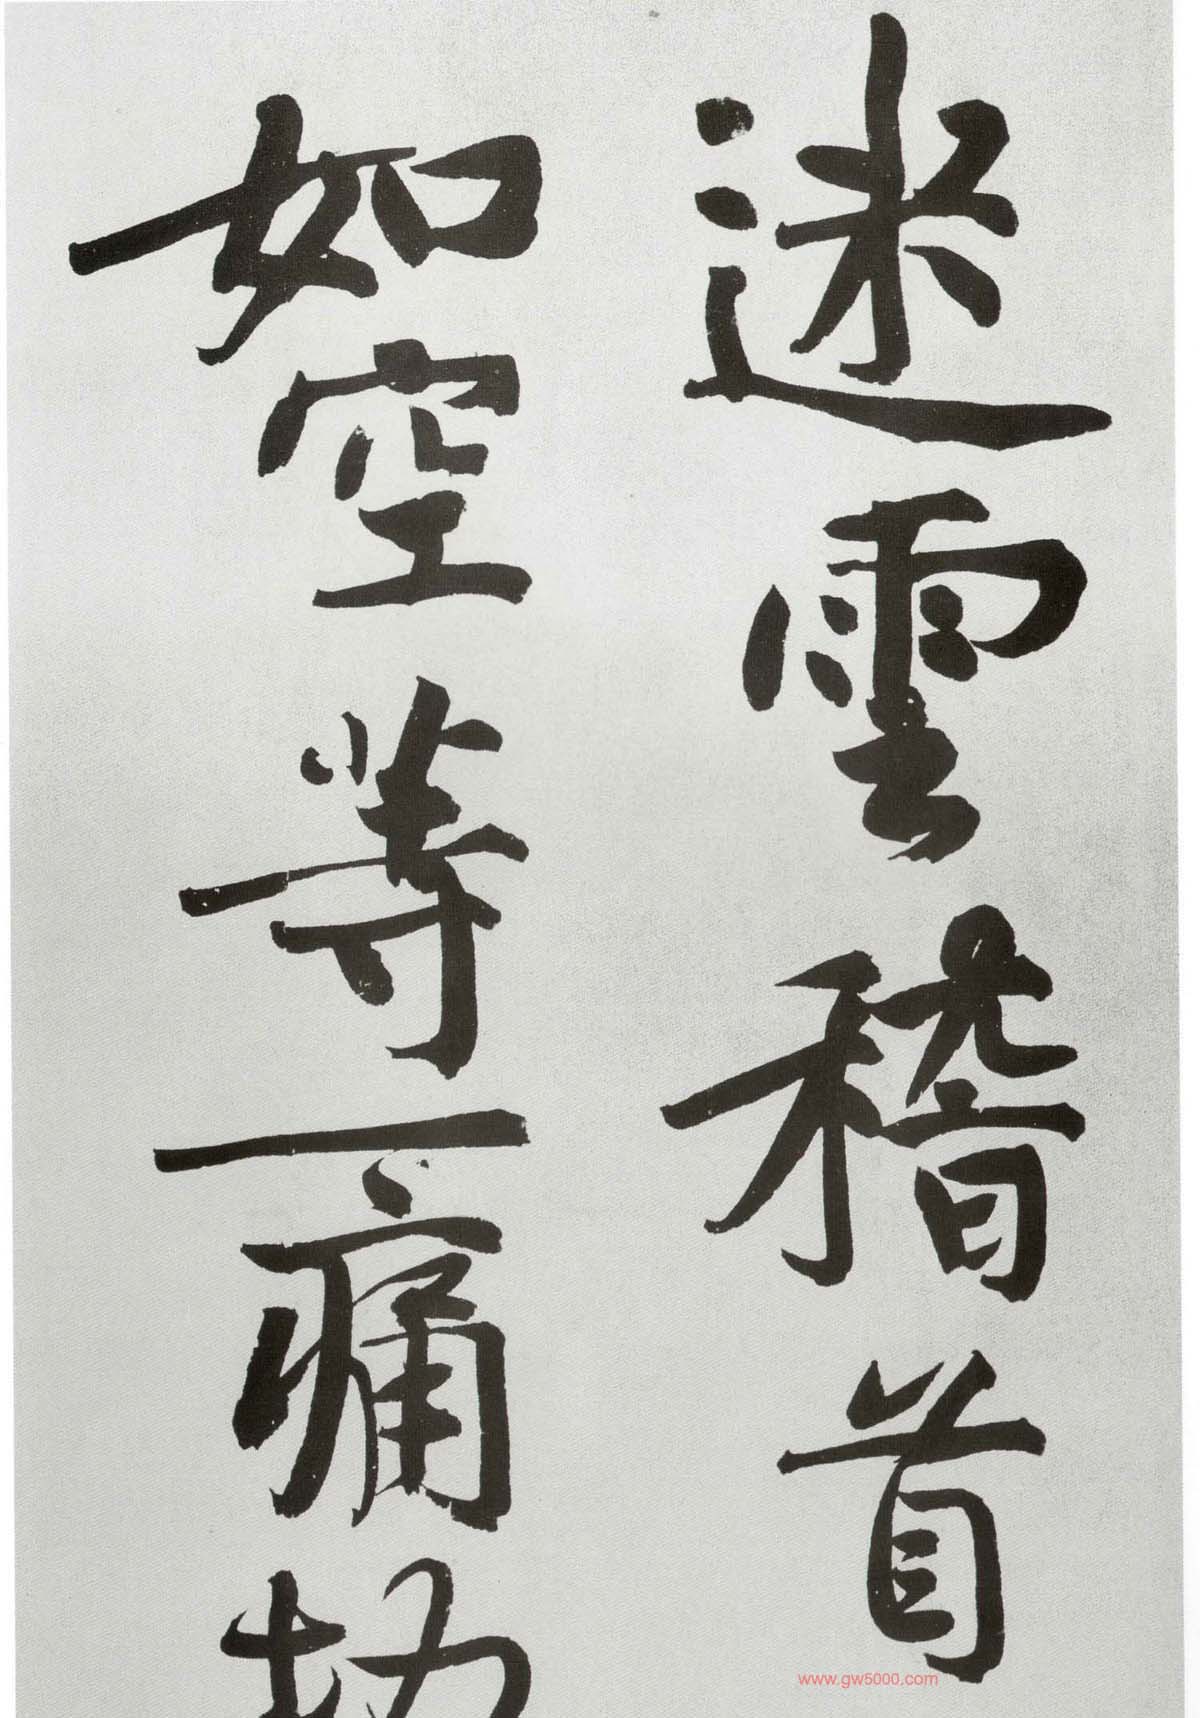 迷雲稽首
如空等一痛切
www.gw5000.com